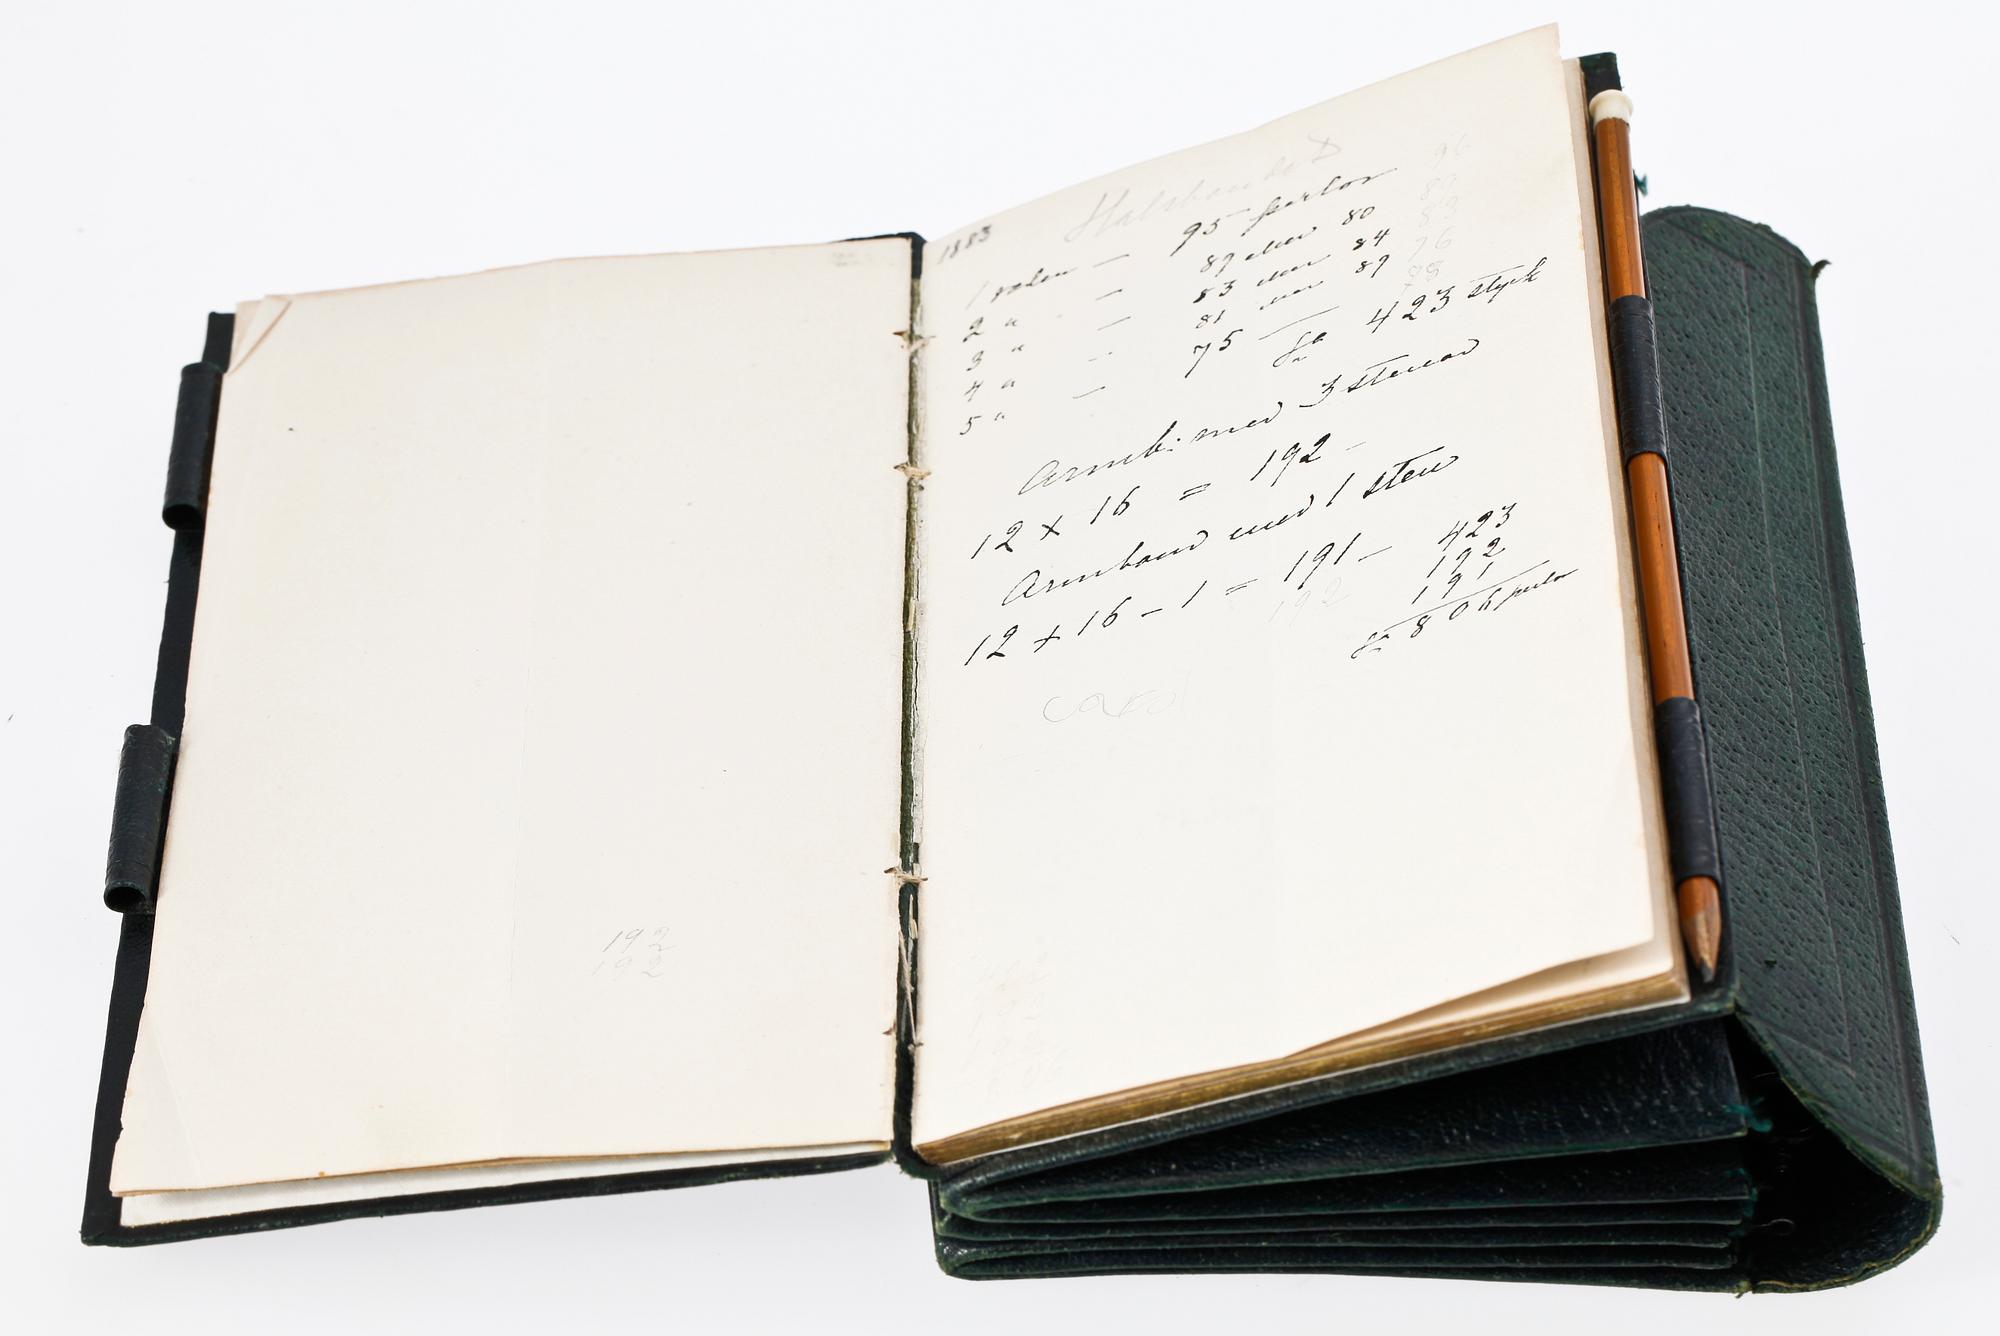 192
192
1883
Halsbandet
1 raden — 95 perlor 96
2 " — 89 eller 80 89
3 " — 83 eller 84 83
4 " — 81 eller 89 76
5 " — 75 —
Sa 423 styck
Armb: med 3 stenar
12 x 16 = 192 —
Armband med 1 sten
12 x 16 - 1 = 191 —
192
423
192
191
Sa 806 perlor